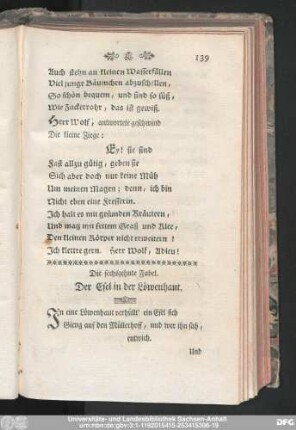 139
Auch stehn an kleinen Wasserfällen
Viel junge Bäumchen abzuschellen,
So schön bequem, und sind so süß,
Wie Zuckerrohr, das ist gewiß.
Herr Wolf, antwortete geschwind
Die kleine Ziege:
Ey! sie sind
Fast allzu gütig, geben sie
Sich aber doch nur keine Müh
Um meinen Magen; denn, ich bin
Nicht eben eine Fresserin.
Ich halt es mit gesunden Kräutern,
Und mag mit fettem Graß und Klee,
Den kleinen Körper nicht erweitern!
Ich klettre gern. Herr Wolf, Adieu!
Die siebzehnte Fabel.
Der Esel in der Löwenhaut.
In eine Löwenhaut verhüllt ein Esel sich
Gieng auf den Müllerhof, und wer ihn sah,
entwich.
Und
Universitäts- und Landesbibliothek Sachsen-Anhalt
urn:nbn:de:gbv:3:1-1192015415-253415306-19
DFG